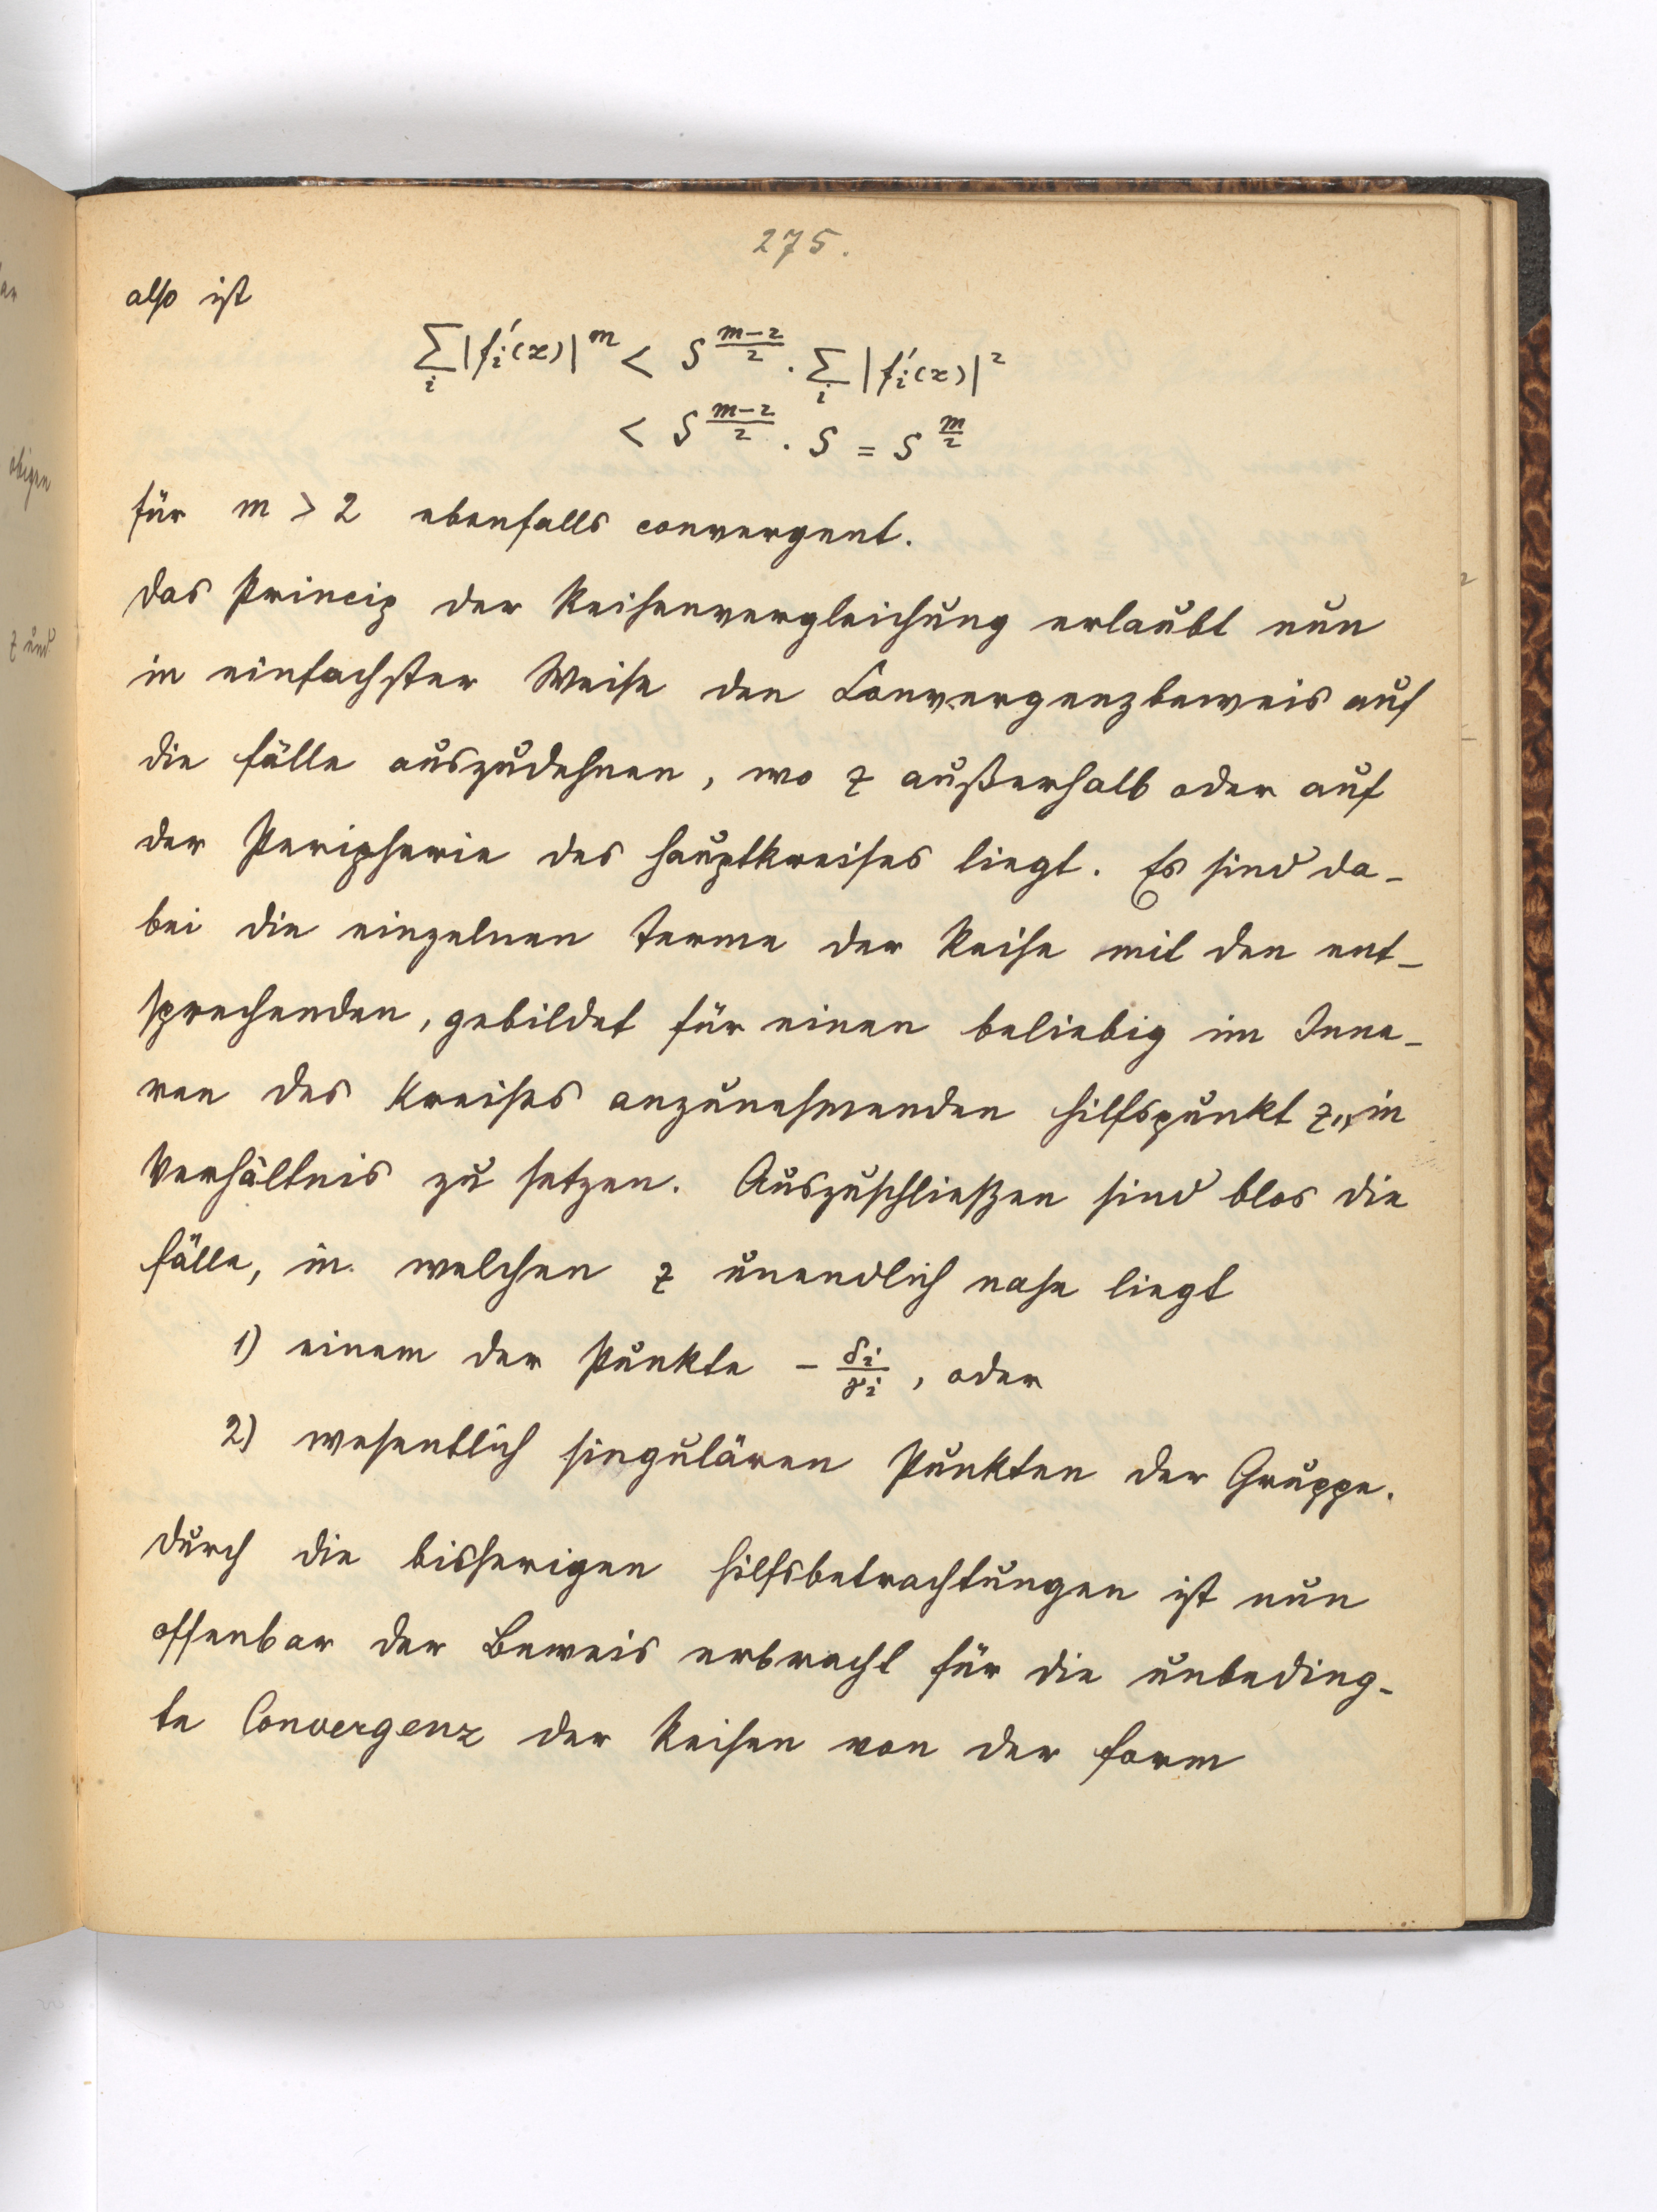 275.
also ist
∑_i |f_i'(z)|^m < S^{\frac{m-2}{2}} · ∑_i |f_i'(z)|^2
< S^{\frac{m-2}{2}} · S = S^{\frac{m}{2}}
für m > 2 ebenfalls convergent.
Das Princip der Reihenvergleichung erlaubt nun
in einfachster Weise den Convergenzbeweis auf
die Fälle auszudehnen, wo z außerhalb oder auf
der Peripherie des Hauptkreises liegt. Es sind da-
bei die einzelnen Terme der Reihe mit den ent-
sprechenden, gebildet für einen beliebig im Inne-
ren des Kreises anzunehmenden Hilfspunkt in
Verhältnis zu setzen. Auszuschließen sind blos die
Fälle, in welchen z unendlich nahe liegt
1) einem der Punkte - \frac{δ_i}{γ_i}, oder
2) wesentlich singulären Punkten der Gruppe.
Durch die bisherigen Hilfsbetrachtungen ist nun
offenbar der Beweis erbracht für die unbeding-
te Convergenz der Reihen von der Form
obigen
z und